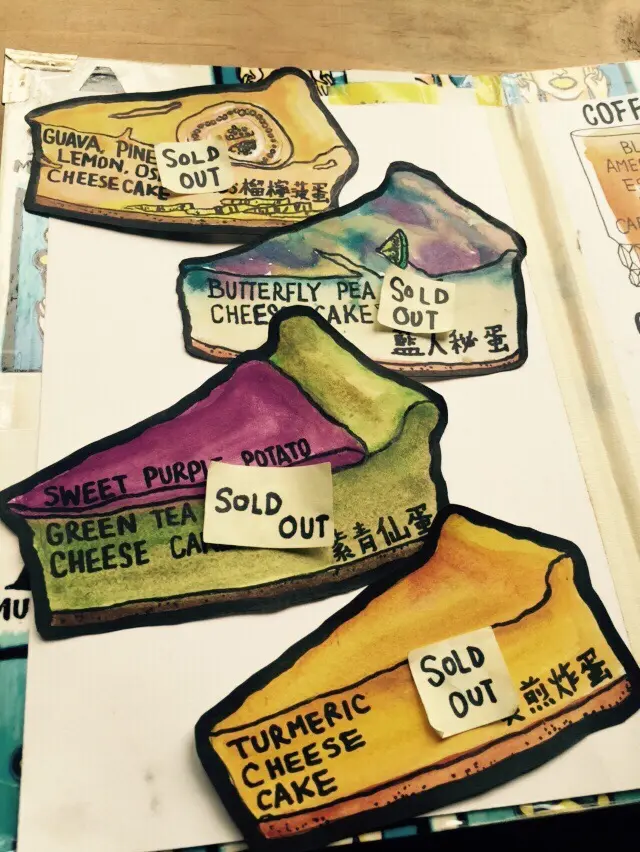 GUAVA, PINE
LEMON, OS
CHEESECAKE
SOLD
OUT
榴檸菠蛋
BUTTERFLY PEA
CHEESE CAKE
SOLD
OUT
藍人秘蛋
SWEET PURPL POTATO
GREEN TEA
CHEESE CA
SOLD
OUT
紫青仙蛋
TURMERIC
CHEESE
CAKE
SOLD
OUT
煎炸蛋
COFF
BL
AME
E
CA
MU